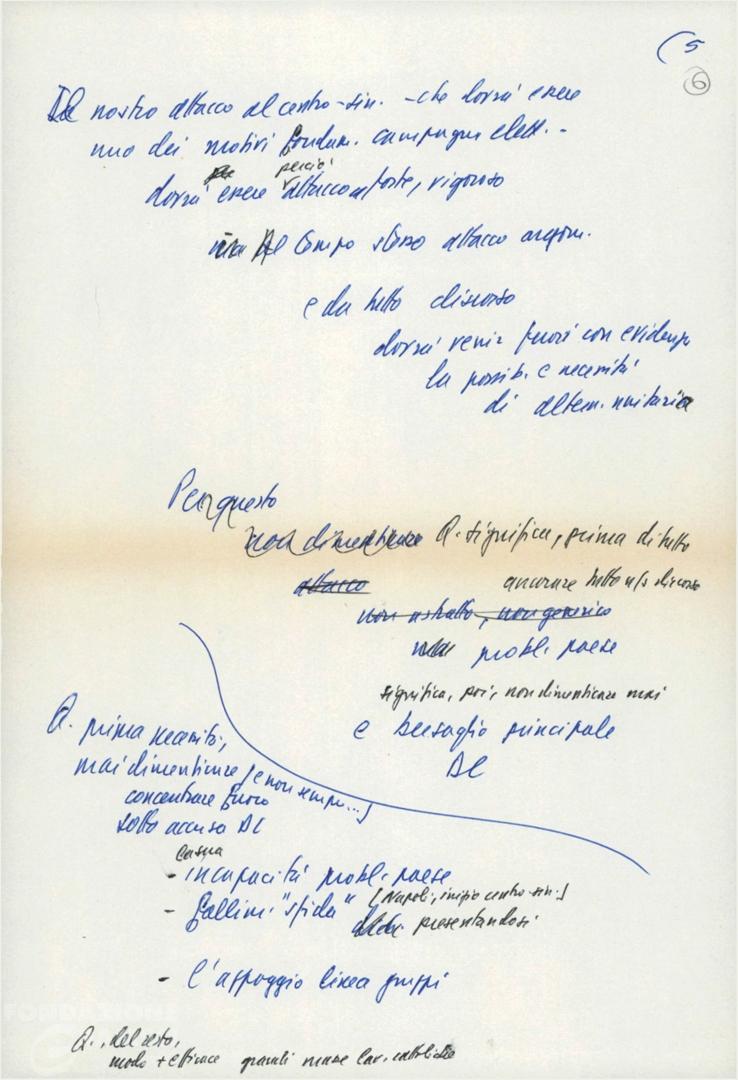 (5
6
Il nostro attacco al centro-sin. - che dovrà essere
uno dei motivi fondam. campagna elett. -
perciò
dovrà essere attacco forte, rigoroso
ma al tempo stesso attacco argom.
e da tutto discorso
dovrà venir fuori con evidenza
la possib. e necessità
di altern. unitaria
Per questo
non dimenticare Q. significa, prima di tutto
attacco ancorare tutto n/s discorso
non astratto, non generico
ma probl. paese
significa, poi, non dimenticare mai
e bersaglio principale
DC
Q. prima necessità,
mai dimenticare [e non sempre...]
concentrare fuoco
sotto accusa DC
causa
- incapacità probl. paese
- fallim. "sfida" [Napoli, inizio centro-sin.]
presentandosi
- l'appoggio linea gruppi
Q., del resto,
modo + efficace grandi masse lav. cattoliche
FONDAZIONE